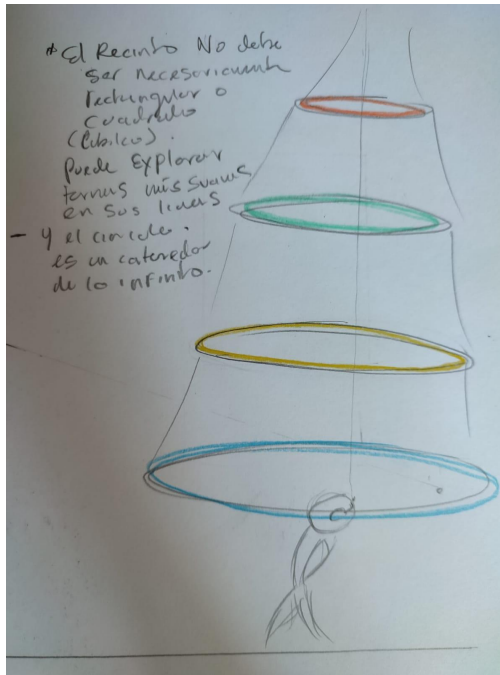 * El Recinto No debe
ser necesariamente
rectangular o
cuadrado
(Cúbico).
Puede Explorar
formas más suaves
en sus lineas
- y el circulo.
es un contenedor
de lo infinito.